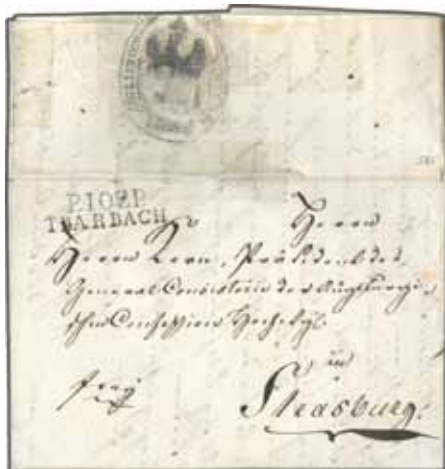 P.102.P.
TRARBACH
Herrn
Herrn Kern, Präsident des
General Consistorii der Augsburgi-
schen Confession
in
frey
Strasburg.